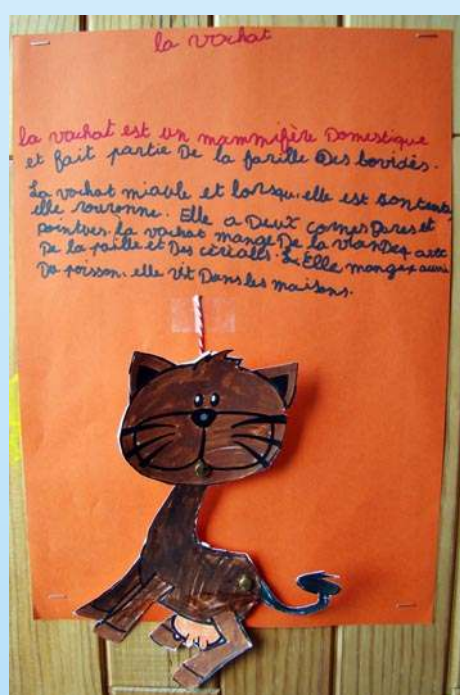 la vachat
la vachat est un mammifère Domestique
et fait partie De la famille Des bovidés.
La vachat miaule et lorsqu'elle est contente,
elle ronronne. Elle a Deux cornes Dures et
pointues. la vachat mange De la viande avec
De la paille et Des céréales. Elle mange aussi
Du poisson. elle vit Dans les maisons.